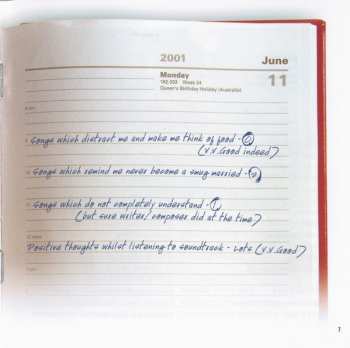 2001 June
Monday 11
162.203 Week 24
Queen's Birthday Holiday (Australia)
Songs which distract me and make me think of food - 0
(v.v.Good indeed)
Songs which remind me never become a smug married - 2
Songs which do not completely understand - 1
(but sure writer/composer did at the time)
Positive thoughts whilst listening to soundtrack - Lots (v.v.Good)